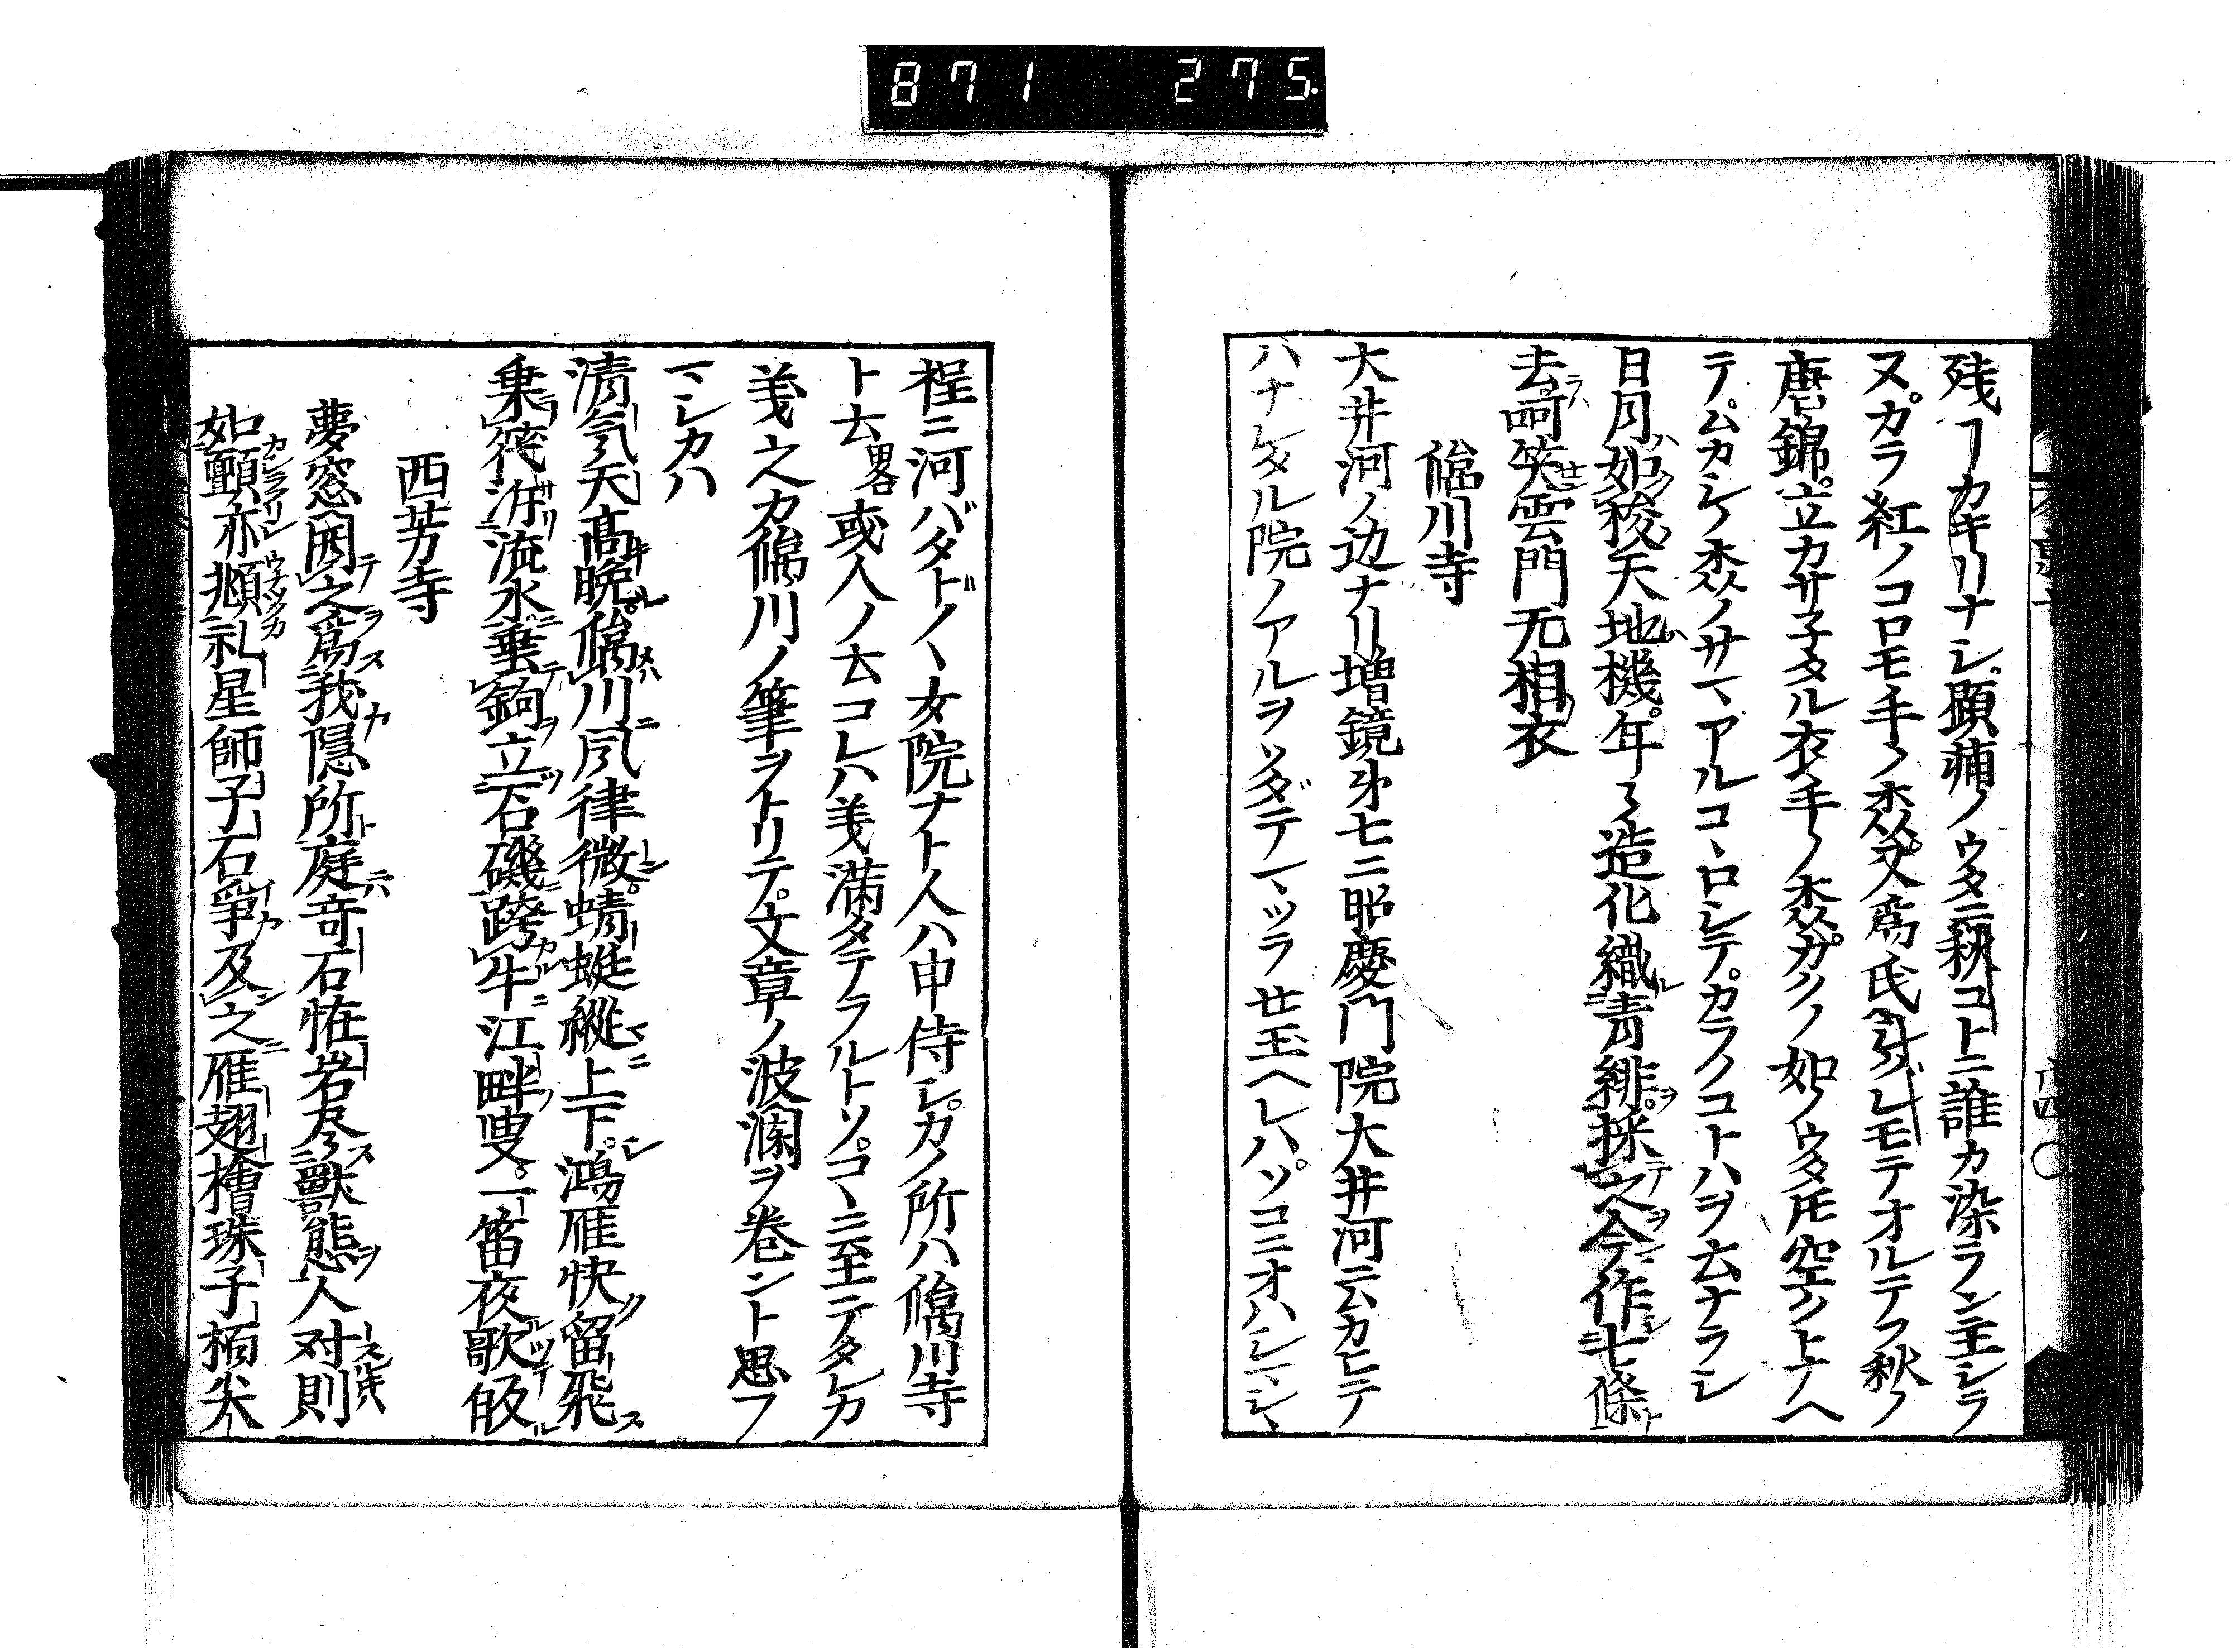 871 275
残ヿカキリナシ顕輔ノウタニ秋コトニ誰カ染ラン主シラ
ヌカラ紅ノコロモ手ノ森又為氏
唐錦立カサ子タル衣手ノ森カクノ如ノウタ𪜈空ノトナヘ
テムカシケ森ノサマアルコヽロシテカラノコトハヲ云ナラシ
日月如梭天地機年々造化織青緋採之今作七條
去呵笑雲門无相衣
大井河ノ辺ナリ増鏡第七ニ昭慶門院大井河ニムカヒテ
ハナレタル院ノアルヲソダテマツラせ玉ヘレハソコニオハシマシヽ
程ニ河バタドノヽ女院ナト人ハ申侍シカノ所ハ
ト云畧或人ノ云コレハ義満タテラルトソコヽニ至ニテタレカ
義之カ 川ノ筆ヲトリテ文章ノ波瀾ヲ巻ント思フ
マシカハ
清氣天高晩 川風律微蜻蜓縦上下鴻雁快留飛
乗筏泝流水垂鉤立石磯跨牛江畔叟一笛夜歌皈
西芳寺
夢窓因之為我隠所庭奇石恠岩尽獣態人対則
如顫亦 礼星師子石爭及之雁翅檜珠子柏尖